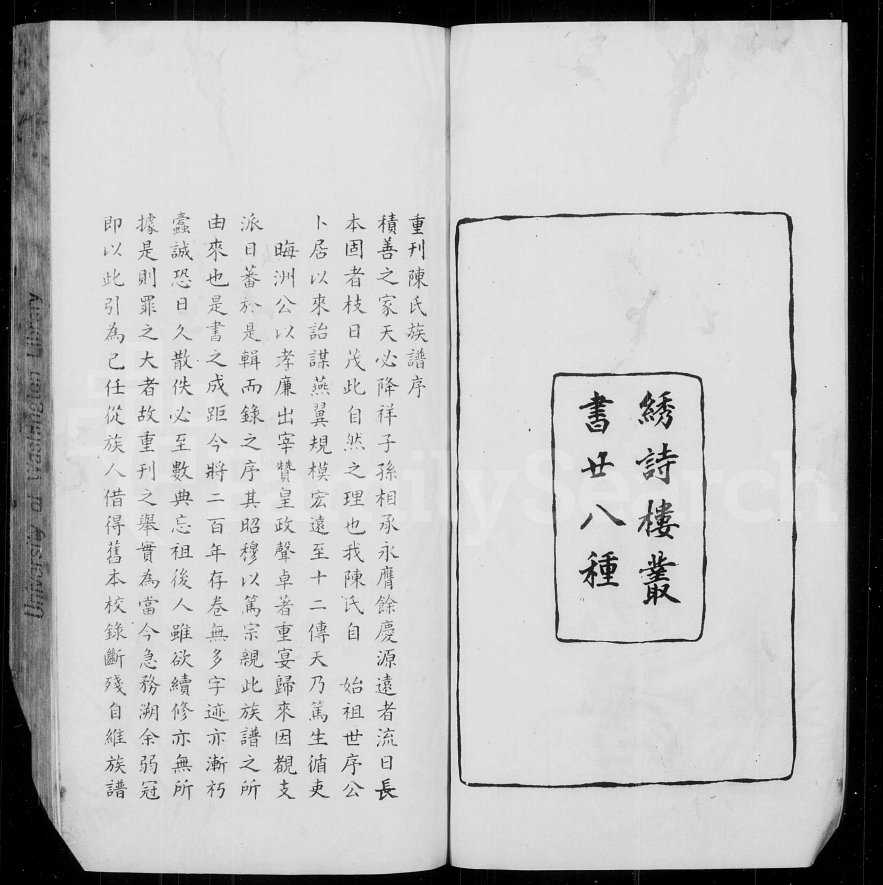 綉詩樓叢
書廿八種
重刊陳氏族譜序
積善之家天必降祥子孫相承永膺餘慶源遠者流日長
本固者枝日茂此自然之理也我陳氏自 始祖世序公
卜居以來詒謀燕翼規模宏遠至十二傳天乃篤生循吏
晦洲公以孝廉出宰贊皇政聲卓著重宴歸來因覩支
派日蕃於是輯而錄之序其昭穆以篤宗親此族譜之所
由來也是書之成距今將二百年存卷無多字迹亦漸朽
蠹誠恐日久散佚必至數典忘祖後人雖欲續修亦無所
據是則罪之大者故重刊之舉實為當今急務溯余弱冠
即以此引為己任從族人借得舊本校錄斷殘自維族譜
FamilySearch